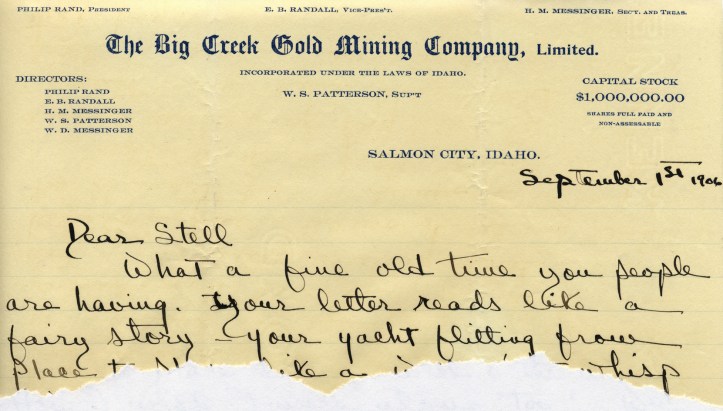 PHILIP RAND, PRESIDENT
E. B. RANDALL, VICE-PRES'T.
H. M. MESSINGER, SEC'T. AND TREAS.
The Big Creek Gold Mining Company, Limited.
INCORPORATED UNDER THE LAWS OF IDAHO.
W. S. PATTERSON, SUP'T
DIRECTORS:
PHILIP RAND
E. B. RANDALL
H. M. MESSINGER
W. S. PATTERSON
W. D. MESSINGER
CAPITAL STOCK
$1,000,000.00
SHARES FULL PAID AND
NON-ASSESSABLE
SALMON CITY, IDAHO.
September 1st 1906
Dear Stell
What a fine old time you people
are having. Your letter reads like a
fairy story - your yacht flitting from
place to like a whisp